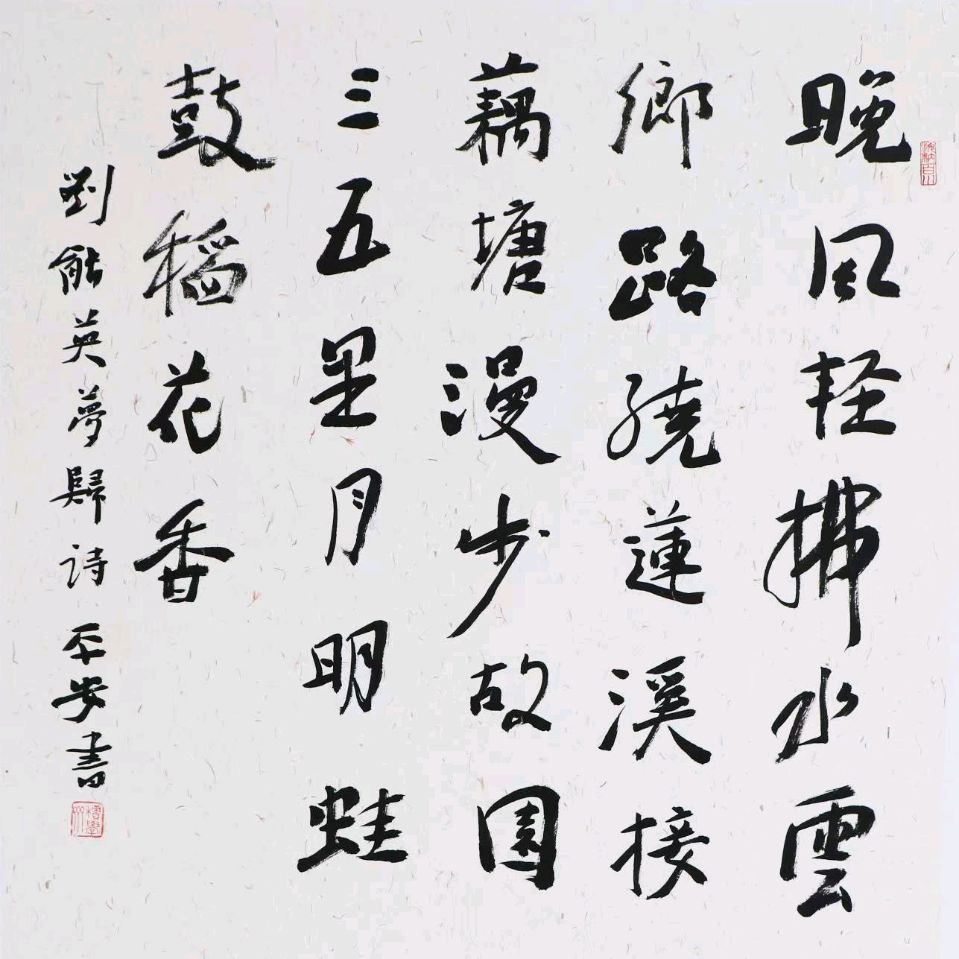 晚风轻拂水雲
鄉路繞蓮溪接
藕塘漫步故園
三五星月明蛙
鼓稻花香
劉能英夢歸詩 平安書